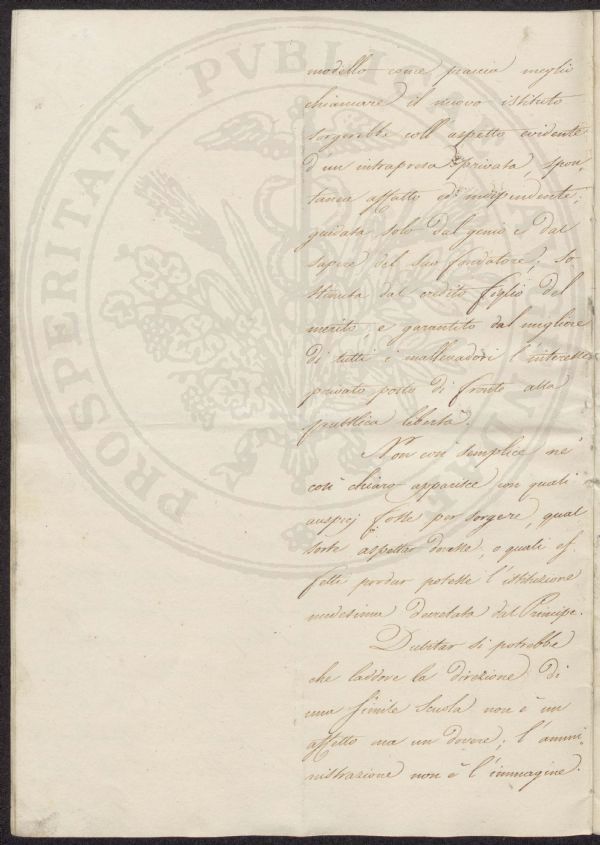 modello come piaccia meglio
chiamare il nuovo istituto
sorgerebbe coll' aspetto evidente
d'un intrapresa privata, spon-
tanea affatto ed indipendente,
guidata solo dal genio e dal
sapere del suo fondatore; so
stenuta dal credito figlio del
merito, e garantito dal migliore
di tutti i mallevadori l'interesse
privato posto di fronte alla
pubblica libertà.
Non così semplice nè
così chiaro apparisce con quali
auspicj fosse per sorgere, qual
sorte aspettar dovesse, e quali ef-
fetti produr potesse l'istituzione
medesima decretata dal Principe.
Dubitar si potrebbe
che laddove la direzione di
una simile Scuola non è un
affetto ma un dovere; l'ammi-
nistrazione non è l'immagine
PROSPERITATI PVBLICAE